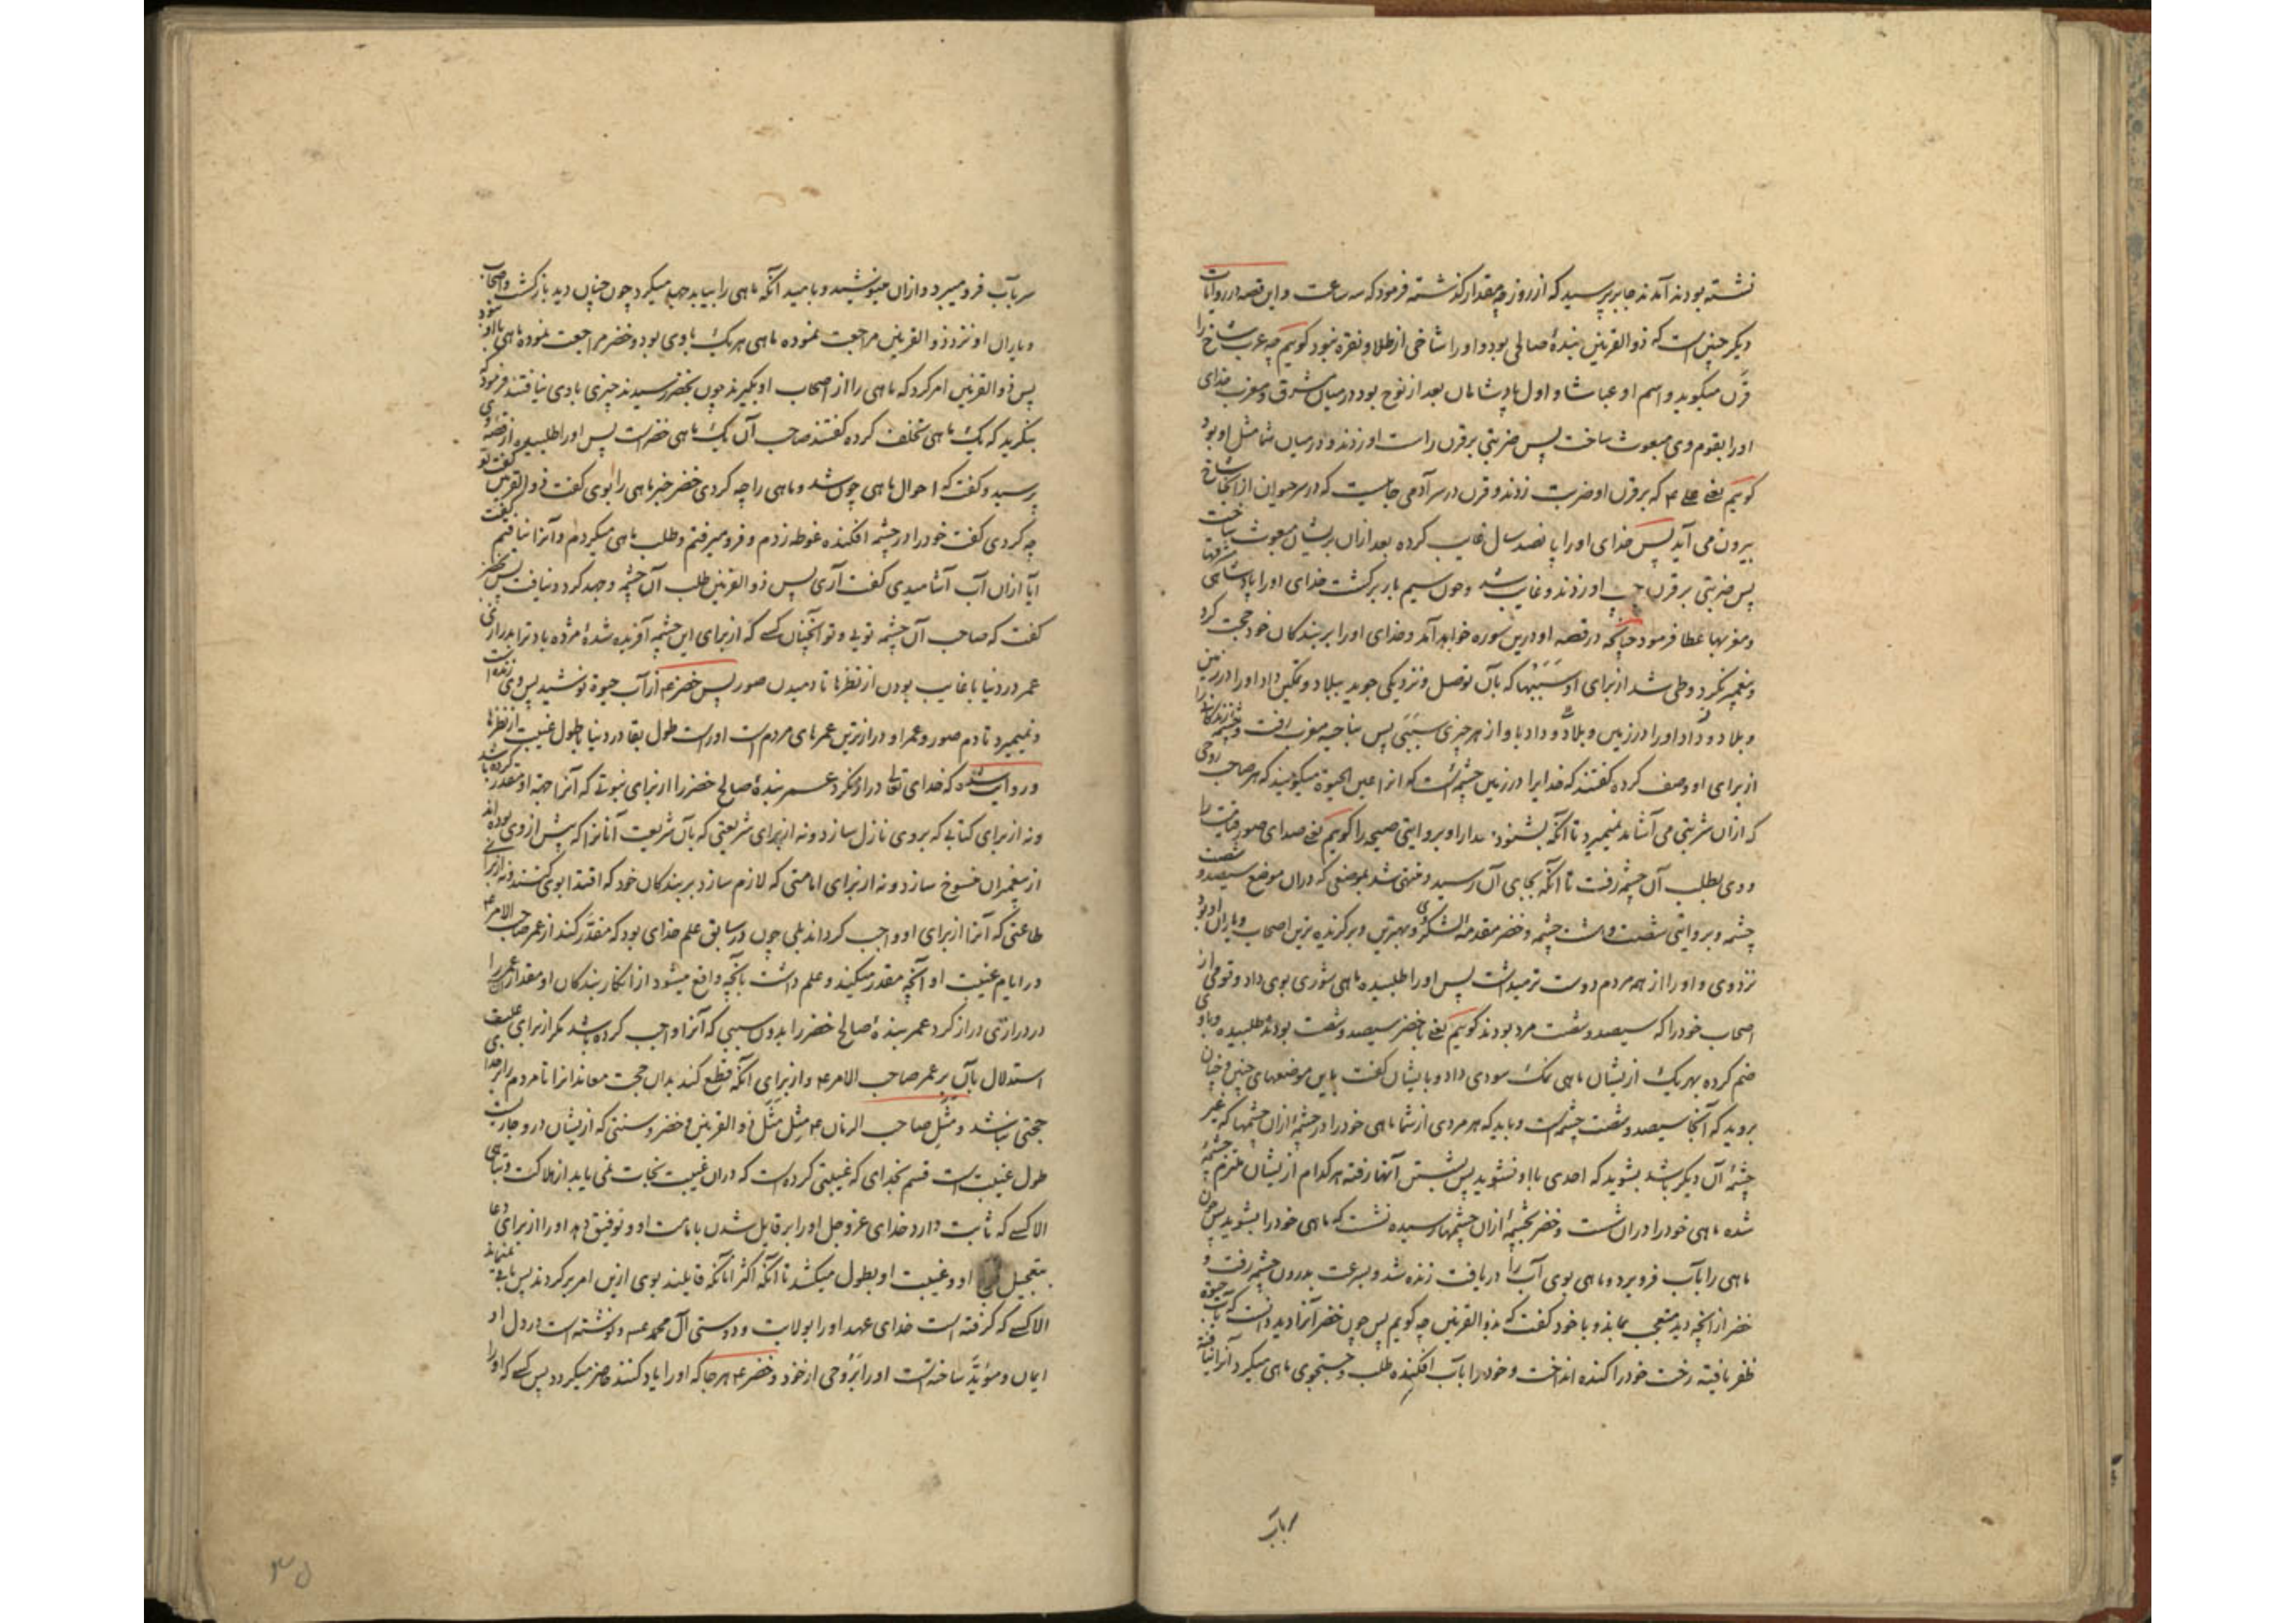 نشسته بودند آمدند جابر پرسید که از روز چه مقدار گذشته فرمود که سه ساعت و این قصه در روایات
دیگر چنین است که ذوالقرنین بندهٔ صالحی بود و او را شاخی از طلا و نقره نبود گوییم چه عرب شاخ را
قرن میگوید و اسم او عیاشا و اول پادشاهان بعد از نوح بود در میان مشرق و مغرب خدای
او را بقوم وی مبعوث ساخت پس ضربتی بر قرن راست او زدند و در میان شما مثل او بود
گوییم یعنی علی ع که بر قرن او ضربت زدند و قرن در سر آدمی جاییست که در سر حیوان از آنجا شاخ
بیرون می آید پس خدای او را پانصد سال غایب کرده بعد از آن بر ایشان مبعوث ساخت
پس ضربتی بر قرن چپ او زدند و غایب شد و چون سیم بار برگشت خدای او را پادشاهی مشرقها
و مغربها عطا فرمود چنانچه در قصه او درین سوره خواهد آمد و خدای او را بر بندگان خود حجت کرد
و پیغمبر نکرد و طی شد از برای او سببها که بآن توصل و نزدیکی جوید ببلاد و تمکین داد او را در زمین
از برای او وصف کرده گفتند که خدایرا در زمین چشمه است که آنرا عین الحیوة میگویند که هر صاحب روحی
که از آن شربتی می آشامد نمیمیرد تا آنکه بشنود صیحه را گوییم یعنی صدای صور قیامت را
و وی بطلب آن چشمه رفت تا آنکه بجای آن رسید و منتهی شد بموضعی که در آن موضع سیصد و شصت
چشمه و بروایتی شصت و هشت چشمه و خضر مقدمة لشکر وی و بهترین و برگزیده ترین اصحاب و یاران او بود
نزد وی و او را از همه مردم دوست تر میداشت پس او را طلبیده ماهی شوری بوی داد و قومی از
اصحاب خود را که سیصد و شصت مرد بودند گوییم یعنی با خضر سیصد و شصت بودند طلبیده و با وی
ضم کرده بهر یک از ایشان ماهی نمک سودی داد و بایشان گفت باین موضعهای چنین و چنان
بروید که آنجا سیصد و شصت چشمه است و باید که هر مردی از شما ماهی خود را در چشمهٔ از آن چشمها که غیر
چشمهٔ آن دیگر باشد بشوید که احدی با او نشوید پس بشستن آنها رفته هر کدام از ایشان ملتزم چشمهٔ
شده ماهی خود را در آن شست و خضر بچشمهٔ از آن چشمها رسیده نشست که ماهی خود را بشوید پس چون
ماهی را بآب فرو برد و ماهی بوی آب را دریافت زنده شد و بسرعت بدرون چشمه رفت و
خضر از آنچه دید متعجب بماند و با خود گفت که بذوالقرنین چه گویم پس چون خضر آنرا دید دانست که بآب حیوة
ظفر یافته رخت خود را کنده انداخت و خود را بآب افکنده طلب و جستجوی ماهی میکرد آنرا نیافته
سر بآب
سر بآب فرو میبرد و از آن مینوشید و بامید آنکه ماهی را بیابد جهد میکرد چون چنان دید بازگشت و اصحاب
و یاران او نزد ذوالقرنین مراجعت نموده ماهی هر یک با وی بود و خضر مراجعت نموده ماهی با او نبود
پس ذوالقرنین امر کرد که ماهی را از اصحاب او بگیرند چون بخضر رسیدند چیزی با وی نیافتند فرمود که
بنگرید که یک ماهی تخلف کرده گفتند صاحب آن یک ماهی خضر است پس او را طلبیده از قصه وی
پرسید و گفت که احوال ماهی چون شد و ماهی را چه کردی خضر خبر ماهی را بوی گفت ذوالقرنین گفت تو
چه کردی گفت خود را در چشمه افکنده غوطه زدم و فرو میرفتم و طلب ماهی میکردم و آنرا نیافتم گفت
آیا از آن آب آشامیدی گفت آری پس ذوالقرنین طلب آن چشمه و جهد کرد و نیافت پس بخضر
گفت که صاحب آن چشمه تویی و تو آنچنان کسی که از برای این چشمه آفریده شدهٔ مژده باد ترا بدرازی
عمر در دنیا با غایب بودن از نظرها تا دمیدن صور پس خضر ع از آب حیوة نوشید پس وی زنده است
و نمیمیرد تا دم صور و عمر او درازترین عمرهای مردم است او راست طول بقا در دنیا با طول غیبت از نظرها
و روایت شده که خدای تعالی دراز نکرد عمر بندهٔ صالح خضر را از برای نبوتی که آنرا جهة او مقدر کرده باشد
و نه از برای کتابی که بر وی نازل سازد و نه از برای شریعتی که بآن شریعت آنانرا که پیش از وی بوده اند
از پیغمبران منسوخ سازد و نه از برای امامتی که لازم سازد بر بندگان خود که اقتدا بوی کنند و نه از برای
طاعتی که آنرا از برای او واجب گرداند بلی چون در سابق علم خدای بود که مقدر کند از عمر صاحب الامر ع
در ایام غیبت او آنچه مقدر میکند و علم داشت بآنچه واقع میشود از انکار بندگان او مقدار عمر را
در درازی دراز کرد عمر بندهٔ صالح خضر را بدون سببی که آنرا واجب کرده باشد مگر از برای علت
استدلال بآن بر عمر صاحب الامر ع و از برای آنکه قطع کند بدان حجت معاندانرا تا مردم را بر خدا
حجتی نباشد و مثل صاحب الزمان ع مثل مثل ذوالقرنین و خضر و سنتی که از ایشان در او جاریست
طول غیبت است قسم بخدای که غیبتی کرده است که در آن غیبت نجات نمی یابد از هلاکت و تباهی
الا کسی که ثابت دارد خدای عزوجل او را بر قایل شدن بامامت او و توفیق دهد او را از برای دعا
بتعجیل او و غیبت او بطول میکشد تا آنکه اکثر آنانکه قایلند بوی ازین امر برگردند پس باقی نمیماند
الا کسی که گرفته است خدای عهد او را بولایت و دوستی آل محمد و نوشته است در دل او
ایمان و مؤید ساخته است او را بروحی از خود و خضر ع هر جا که او را یاد کنند حاضر میگردد پس کسی که او را
۳۵